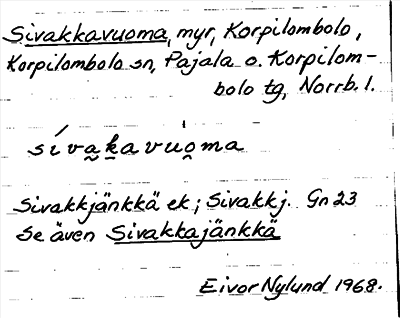 Sivakkavuoma, myr, Korpilombolo,
Korpilombolo sn, Pajala o. Korpilom-
bolo tg, Norrb. l.
sívak̬avuòma
Sivakkjänkkä ek; Sivakkj. Gn 23
Se även Sivakkajänkkä
Eivor Nylund 1968.